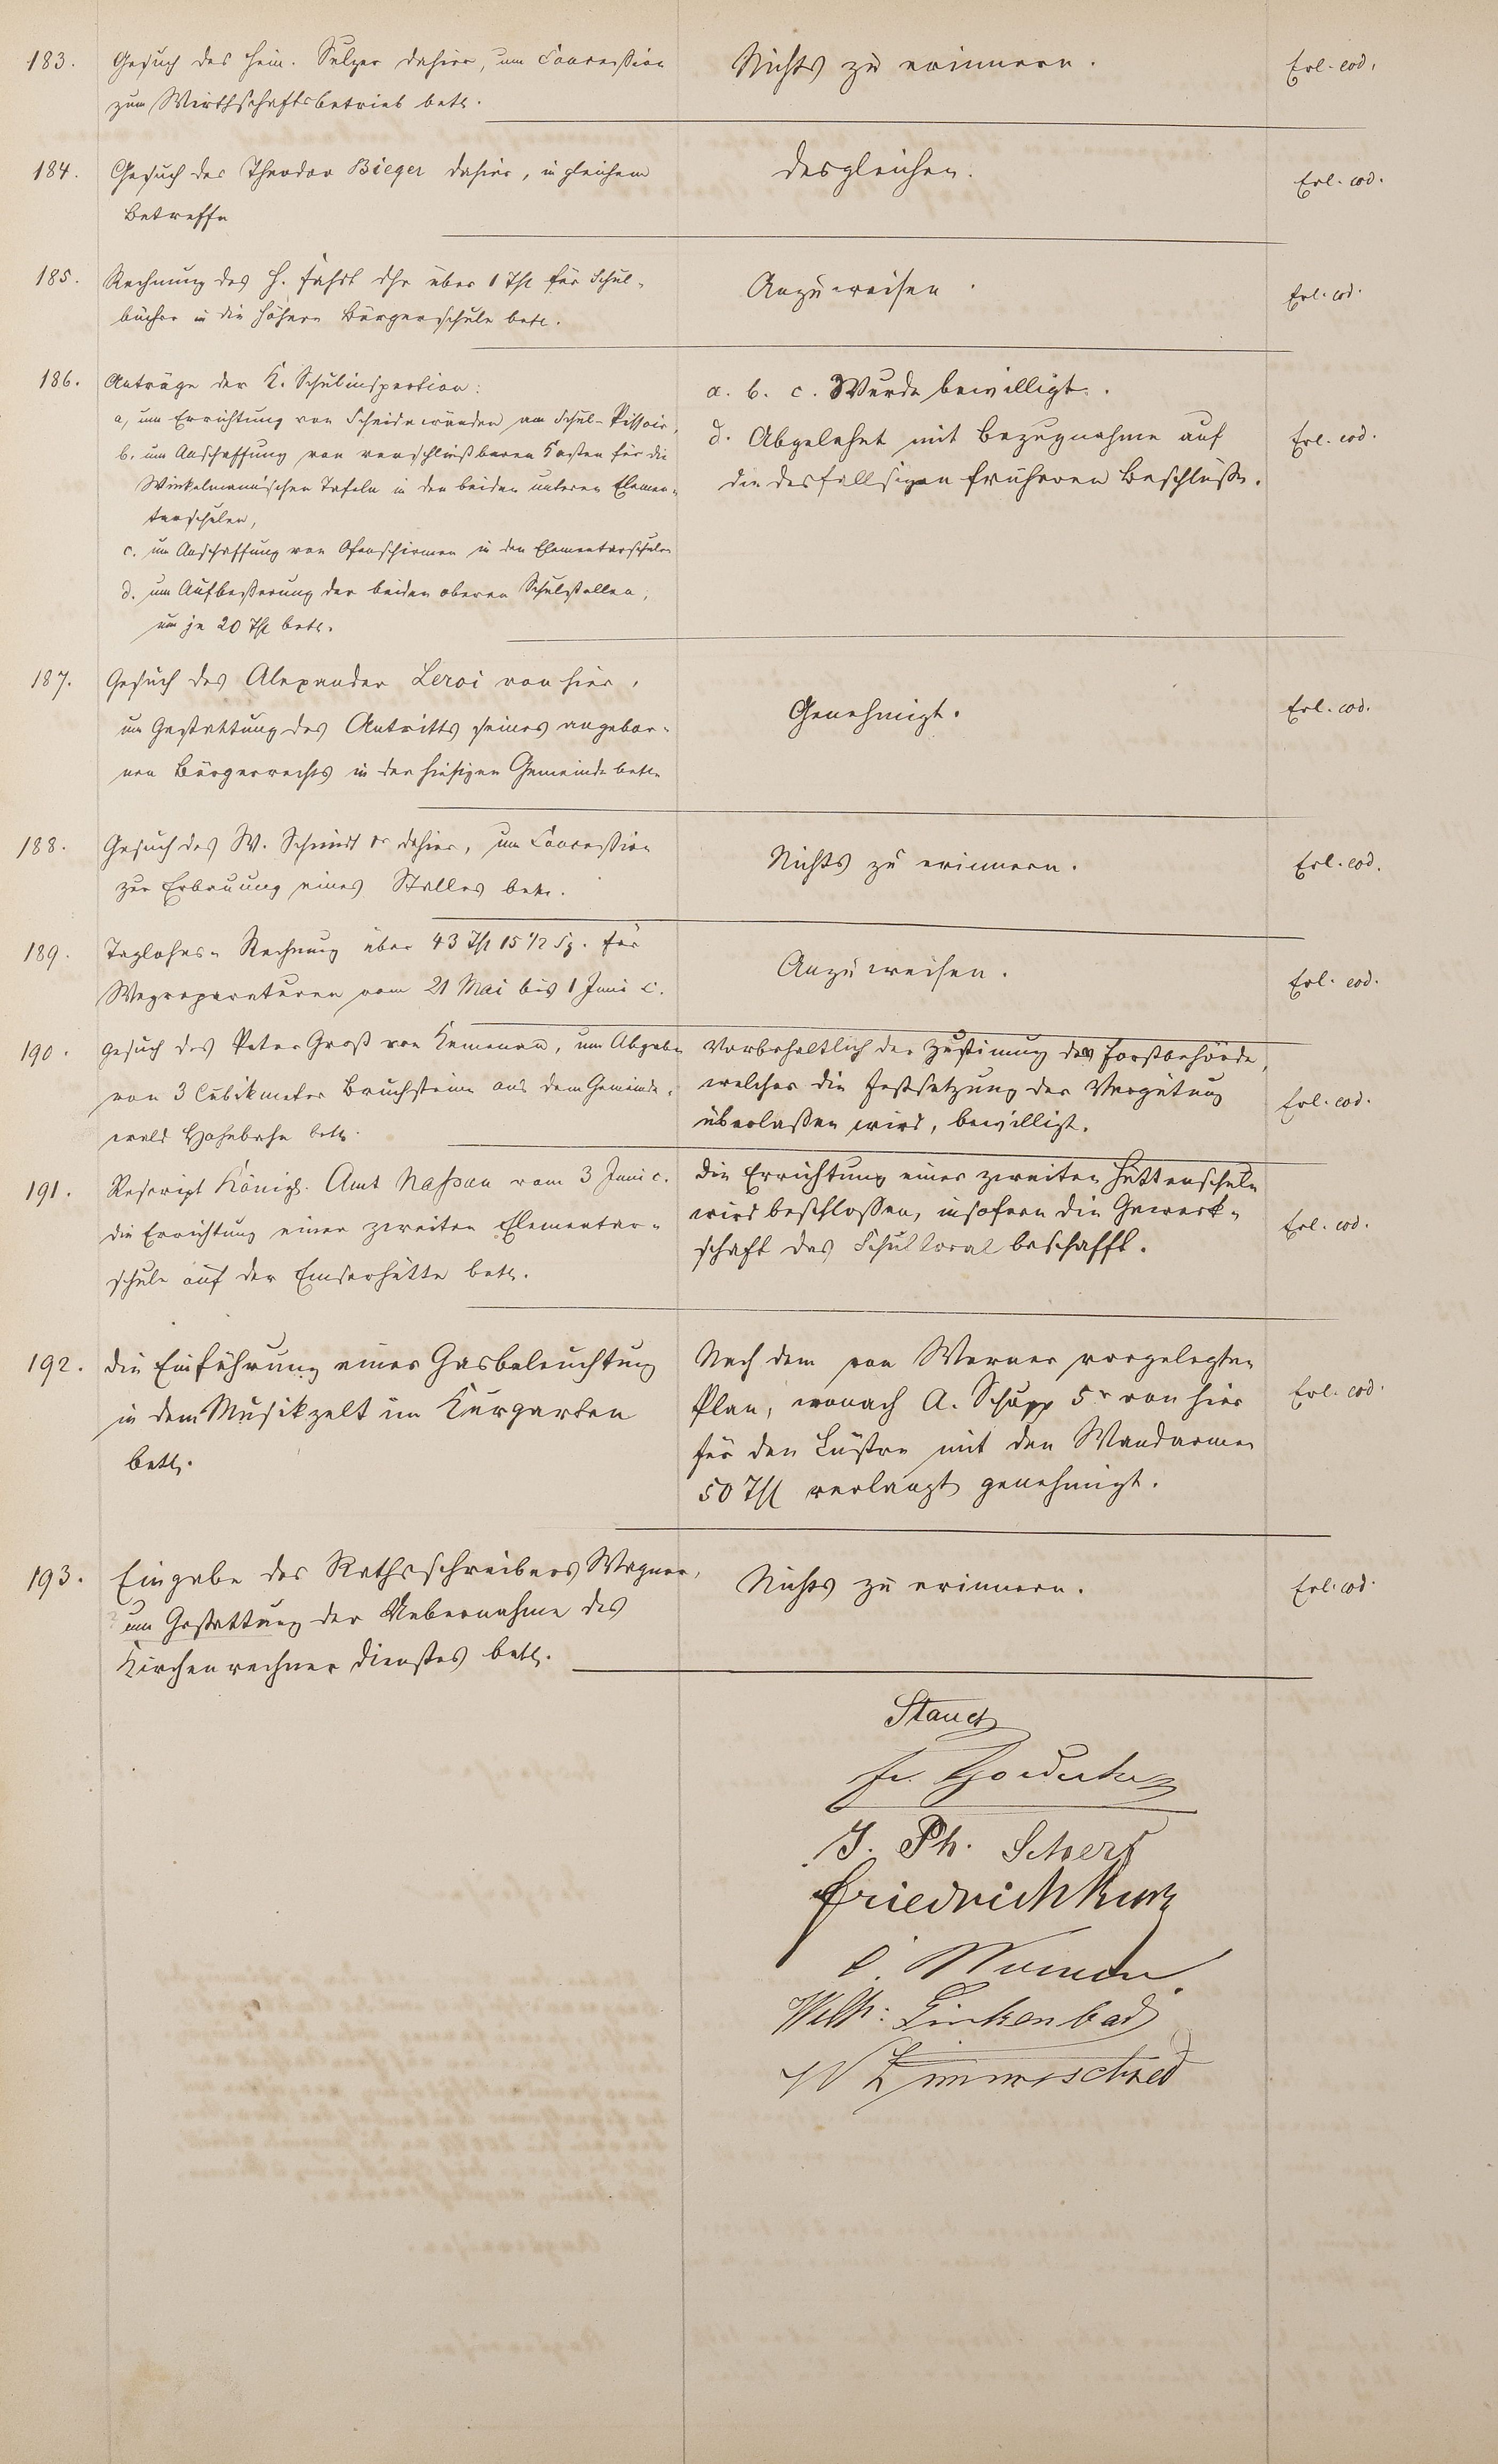 183. Gesuch des Hein. Sulzer dahier, um Concession
zum Wirthschaftsbetrieb betr.
Nichts zu erinnern.
Erl. eod.
184. Gesuch des Theodor Bieger dahier, in gleichem
Betreffe
desgleichen.
Erl. eod.
185. Rechnung des H. dhr über 1 Thl für Schul-
bücher in die höhere Bürgerschule betr.
Anzuweisen.
Erl. eod.
186. Anträge der K. Schulinspection:
a, um Errichtung von Scheidewänden am Schul-Pissoir,
b. um Anschaffung von verschließbaren Kasten für die
Winkelmann'schen Tafeln in den beiden unteren Elemen-
tarschulen,
c. um Anschaffung von Ofenschirmen in den Elementarschulen
d. um Aufbeßerung der beiden oberen Schulstellen,
um je 20 Thl betr.
a. b. c. Wurde bewilligt.
d. Abgelehnt mit Bezugnahme auf
die desfallsigen früheren Beschlüße.
Erl. eod.
187. Gesuch des Alexander Leroi von hier,
um Gestattung des Antritts seines angebor-
nen Bürgerrechts in der hiesigen Gemeinde betr.
Genehmigt.
Erl. eod.
188. Gesuch des W. Schmidt dahier, um Concession
zur Erbauung eines Stalles betr.
Nichts zu erinnern.
Erl. eod.
189. Taglohns-Rechnung über 43 Thl 15 1/2 Sg. für
Wegreparaturen vom 21 Mai bis 1 Juni c.
Anzuweisen.
Erl. eod.
190. Gesuch des Peter Groß von Kemenau, um Abgabe
von 3 Cubikmeter Bruchsteine aus dem Gemeinde-
wald betr.
Vorbehaltlich der Zustimung der Forstbehörde,
welcher die Festsetzung der Vergütung
überlaßen wird, bewilligt.
Erl. eod.
191. Rescript Königl. Amt Naßau vom 3 Juni c.
die Errichtung einer zweiten Elementar-
schule auf der Emserhütte betr.
Die Errichtung einer zweiten Hüttenschule
wird beschloßen, insofern die Gewerk-
schaft das Schullocal beschafft.
Erl. eod.
192. Die Einführung einer Gasbeleuchtung
in dem Musikzelt im Kurgarten
betr.
Nach dem von Werner vorgelegten
Plan, wonach A. Schupp 5r von hier
für den Lüstre mit den Wandarmen
50 Thl verlangt genehmigt.
Erl. eod.
193. Eingabe des Rathsschreibers Wagner,
um Gestattung der Uebernahme des
Kirchenrechner Dienstes betr.
Nichts zu erinnern.
Erl. eod.
J. Ph. Scherf
Friedrich Kurz
Wilh: Linkenbach
W Zimmerschied